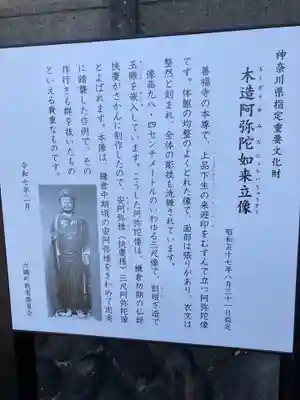 神奈川県指定重要文化財
木造阿弥陀如来立像
もくぞうあみだにょらいりゅうぞう
昭和五十七年八月三十一日指定
善福寺の本尊で、上品下生の来迎印をむすんで立つ阿弥陀像
です。体躯の均整のよくとれた像で、面部は張りがあり、衣文は
整然と刻まれ、全体の彫技も洗練されています。
像高九八・四センチメートルのいわゆる三尺像で、割矧ぎ造で
玉眼を嵌入しています。こうした阿弥陀像は、鎌倉初期の仏師
快慶がさかんに制作したので、安阿弥様（快慶様）三尺阿弥陀像
とよばれます。本像は、鎌倉中期頃の安阿弥様をきわめて忠実
に踏襲した作例で、その
作行きも群を抜いたもの
といえる貴重なものです。
大磯町教育委員会